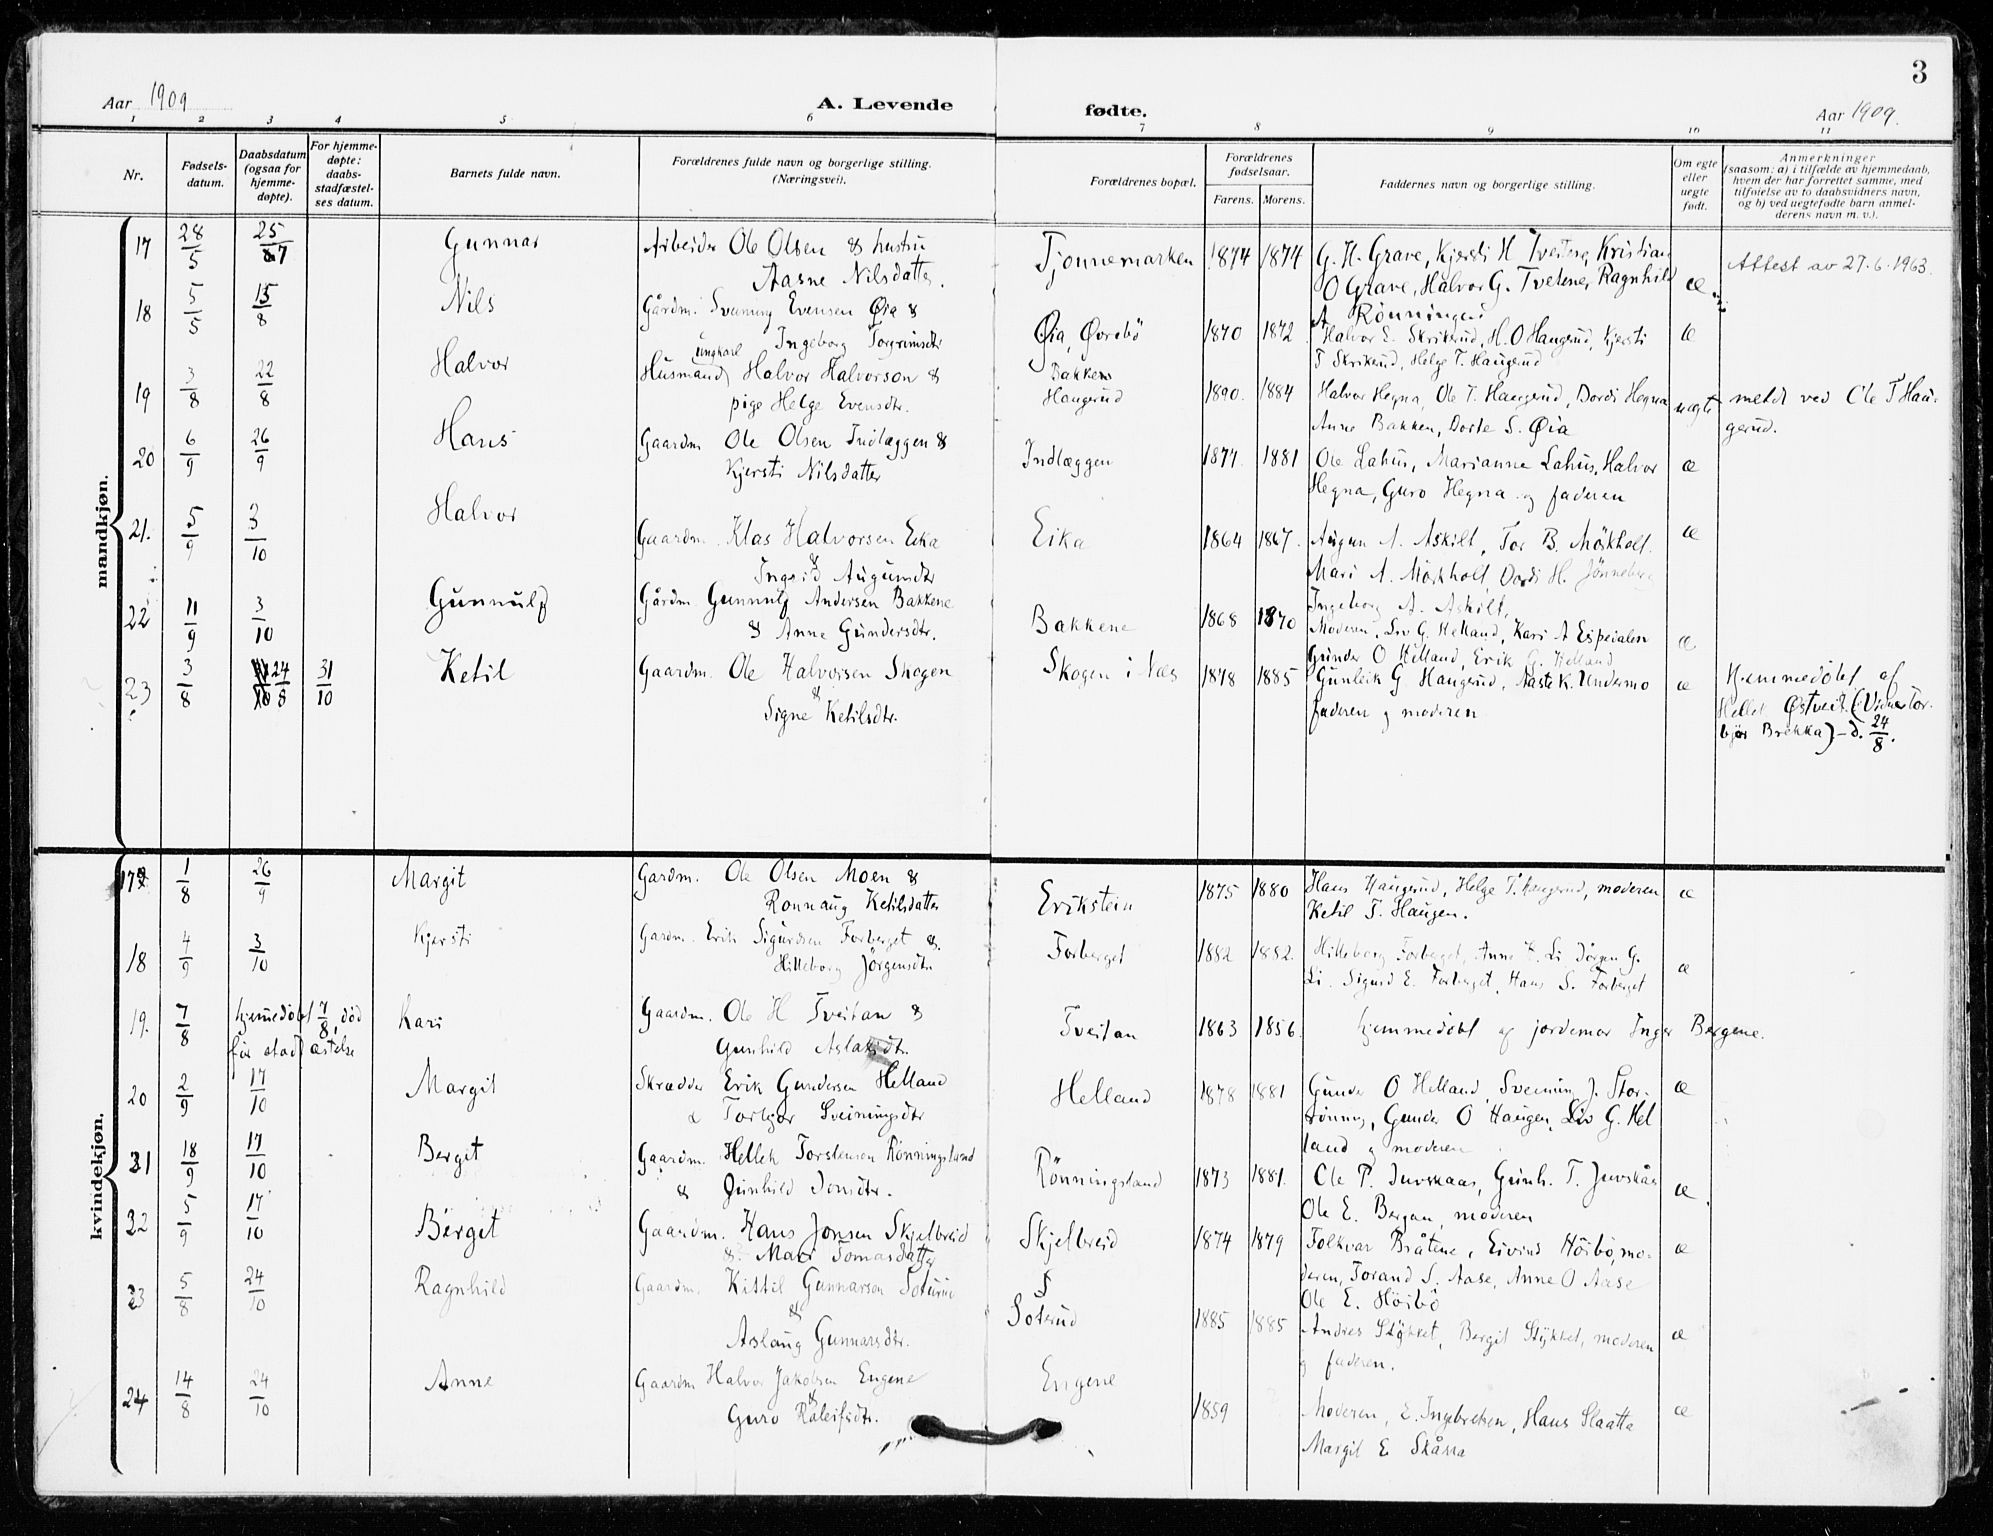 3
Aar 1909 A. Levende fødte. Aar 1909.
1 2 3 4 5 6 7 8 9 10 11
Nr.
Fødsels-
datum.
Daabsdatum
(ogsaa for
hjemme-
døpte).
For hjemme-
døpte:
daabs-
stadfæstel-
ses datum.
Barnets fulde navn.
Forældrenes fulde navn og borgerlige stilling.
(Næringsvei).
Forældrenes bopæl.
Forældrenes
fødselsaar.
Farens. Morens.
Faddernes navn og borgerlige stilling.
Om egte
eller
uegte
født.
Anmerkninger
(saasom: a) i tilfælde av hjemmedaab,
hvem der har forrettet samme, med
tilføielse av to daabsvidners navn,
og b) ved uegtefødte barn anmel-
derens navn m. v.).
mandkjøn.
17 28/5 25/7 Gunnar Arbeider Ole Olsen & hustru
Aasne Nilsdatter.
Tjønnemarken 1874 1874 G. H. Grave, Kjersti H Tveitene, Kristian
O Grave, Halvor G. Tvetene, Ragnhild
A Rönningen
æ
Attest av 27.6.1963.
18 5/5 15/8 Nils Gårdm. Sveinung Evensen Øia &
Ingeborg Torgrimsdtr
Øia, Øvrebö 1870 1872 Halvor E. Skrikerud, H. O Haugerud, Kjersti
T Skrikerud, Helge T. Haugerud
æ
19 3/8 22/8 Halvor ungkarl
Husmand Halvor Halvorson &
pige Helge Evensdtr.
Bakken
Haugerud 1890. 1884 Halvor Hegna, Ole T. Haugerud, Dordi Hegna
Anne Bakken, Dorte S. Øia
uegte
meldt ved Ole T Hau-
gerud.
20 6/9 26/9 Hans Gaardm. Ole Olsen Indlæggen &
Kjersti Nilsdatter
Indlæggen 1877. 1881 Ole Lahus, Marianne Lahus, Halvor
Hegna, Guro Hegna og faderen
æ
21. 5/9 3/10 Halvor Gaardm. Klas Halvorsen Eika
&
Ingrid Augunsdtr
Eika 1864 1867. Augun A. Askilt, Tor B. Mörkholt.
Mari A. Mörkholt, Dordi H. Jönneberg
Ingeborg A. Askilt,
æ
22 11/9 3/10 Gunnulf Gårdm. Gunnulf Andersen Bakkene
& Anne Gundersdtr.
Bakkene 1868 1870 Moderen, Liv G. Helland, Kari A Espeialen
Gunder O Helland, Erik G. Helland
æ
23 3/8 24/8 31/10 Ketil Gaardm. Ole Halvorsen Skogen
&
Signe Ketilsdtr.
Skogen i Næs 1878 1885 Gunleik G. Haugerud, Aaste K. Undermo
faderen og moderen.
æ
Hjemmedöbt af
Hellek Østveit (Vidne Tor-
bjør Brekka) – d. 24/8.
kvindekjøn.
17 1/8 26/9 Margit Gardm. Ole Olsen Moen &
Rønnaug Ketilsdatter
Erikstein 1875 1880 Hans Haugerud, Helge T. Haugerud, moderen
Ketil T. Haugen.
æ
18 4/9 3/10 Kjersti Gardm. Erik Sigurdsen Forberget &
Hilleborg Jörgensdtr.
Forberget 1882 1882. Hilleborg Forberget, Anne E. Li Jörgen G.
Li. Sigurd E. Forberget, Hans S. Forberget
æ
19. 7/8 hjemedöbt 7/8, död
før stadfæstelse
Kari Gaardm. Ole H Tveitan &
Gunhild Aslaksdtr.
Tveitan 1863 1856. hjemmedöbt af jordemor Inger Bergene.
20 2/9 17/10 Margit Skrædder Erik Gundersen Helland
& Torbjør Sveinungsdtr
Helland 1878 1881 Gunder O Helland, Sveinung J. Stor-
rönning, Gunder O Haugen, Liv G. Hel
land og moderen
æ
21 18/9 17/10 Bergit Gaardm. Hellek Torstensen Rönningsland
& Gunhild Jonsdtr.
Rönningsland 1873 1881. Ole P. Juvskaas, Gunh. T. Juvskås
Ole E. Bergan, moderen
æ.
22 5/9 17/10 Bergit Gaardm. Hans Jonsen Skjelbreid
& Mari Tomasdatter
Skjelbreid 1874 1879 Folkvar Bråtene, Eivind Höibö, mo-
deren, Torand S. Aase, Anne O Aase
Ole E. Höibö
æ
23 5/8 24/10 Ragnhild Gaardm. Kittil Gunnarson Soterud
&
Aslaug Gunnarsdtr.
Soterud 1885 1885 Andres Stykket, Bergit Stykket, moderen
og faderen.
æ
24 14/8 24/10 Anne Gaardm Halvor Jakobsen Engene
&
Guro Roleifsdtr.
Engene 1859 Moderen, E. Ingebretsen, Hans Slaatta
Margit E Skårra
æ